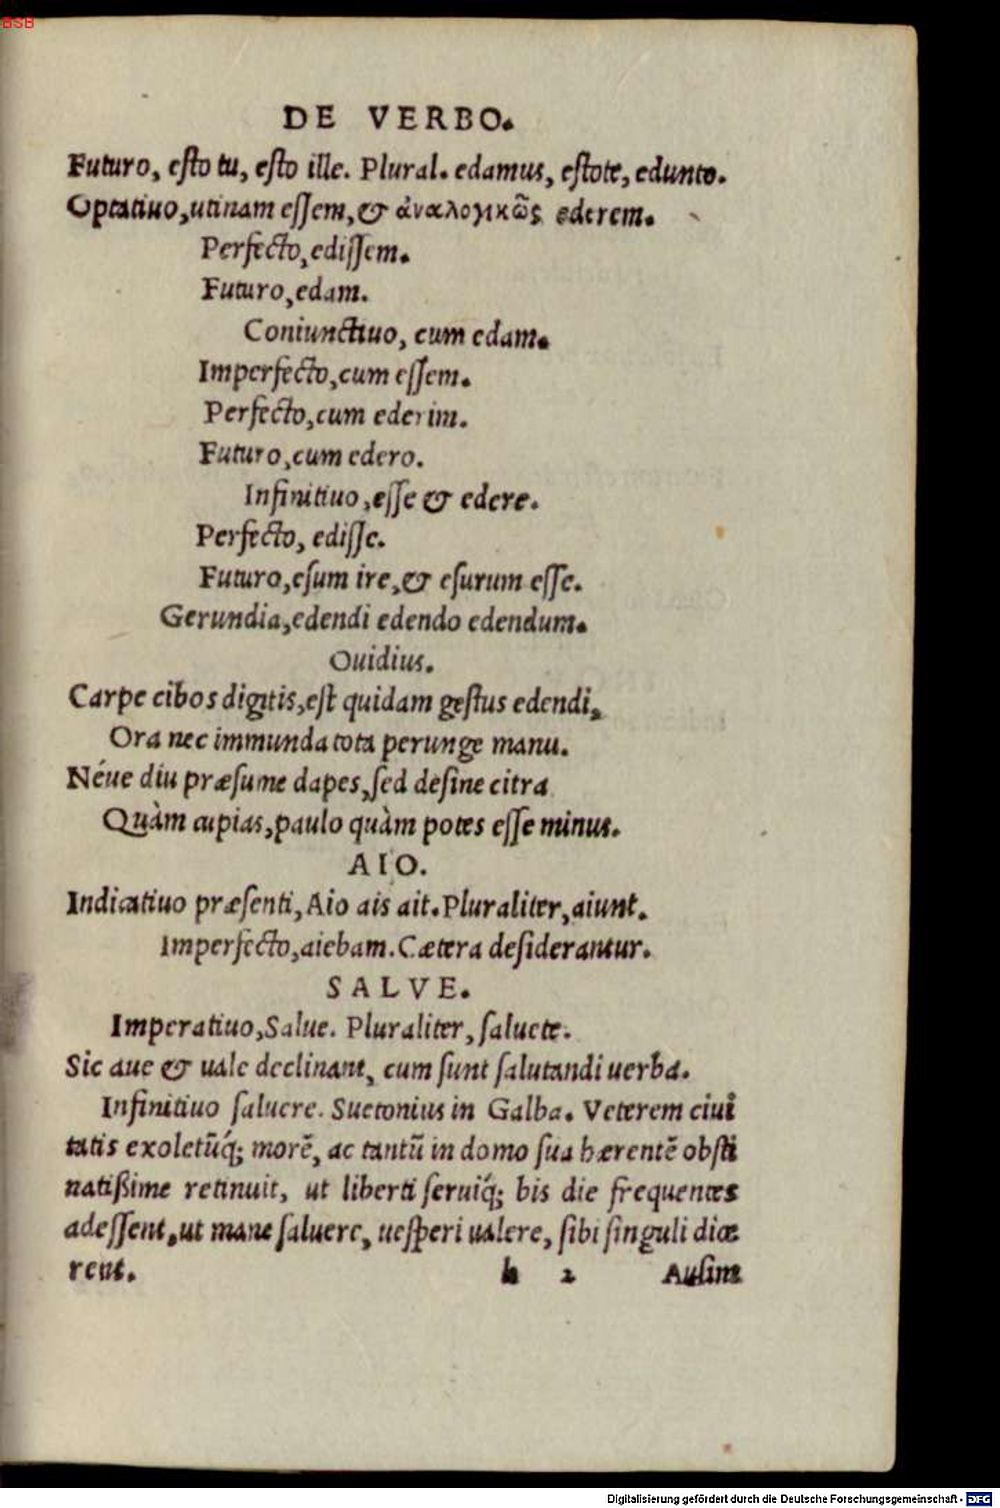 BSB
DE VERBO.
Futuro, esto tu, esto ille. Plural. edamus, estote, edunto.
Optatiuo, utinam essem, & ἀναλογικῶς ederem.
Perfecto, edissem.
Futuro, edam.
Coniunctiuo, cum edam.
Imperfecto, cum essem.
Perfecto, cum ederim.
Futuro, cum edero.
Infinitiuo, esse & edere.
Perfecto, edisse.
Futuro, esum ire, & esurum esse.
Gerundia, edendi edendo edendum.
Ouidius.
Carpe cibos digitis, est quidam gestus edendi,
Ora nec immunda tota perunge manu.
Néue diu præsume dapes, sed desine citra
Quàm cupias, paulo quàm potes esse minus.
AIO.
Indicatiuo præsenti, Aio ais ait. Pluraliter, aiunt.
Imperfecto, aiebam. Cætera desiderantur.
SALVE.
Imperatiuo, Salue. Pluraliter, saluete.
Sic aue & uale declinant, cum sunt salutandi uerba.
Infinitiuo saluere. Suetonius in Galba. Veterem ciui
tatis exoletũq́; morẽ, ac tantũ in domo sua hærentẽ obsti
natißime retinuit, ut liberti seruiq́; bis die frequentes
adessent, ut mane saluere, uesperi ualere, sibi singuli dice
rent.
h 2
Ausim
Digitalisierung gefördert durch die Deutsche Forschungsgemeinschaft - DFG